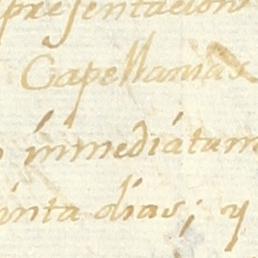 presentacion
Capellanias
inmediátam
inta dias; y